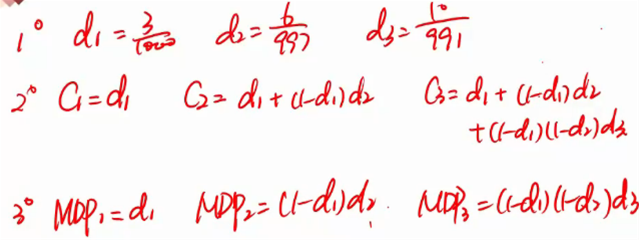 1° d₁ = 3/1000 d₂ = 6/997 d₃ = 10/991
2° C₁ = d₁ C₂ = d₁ + (1-d₁)d₂ C₃ = d₁ + (1-d₁)d₂
+ (1-d₁)(1-d₂)d₃
3° MDP₁ = d₁ MDP₂ = (1-d₁)d₂. MDP₃ = (1-d₁)(1-d₂)d₃